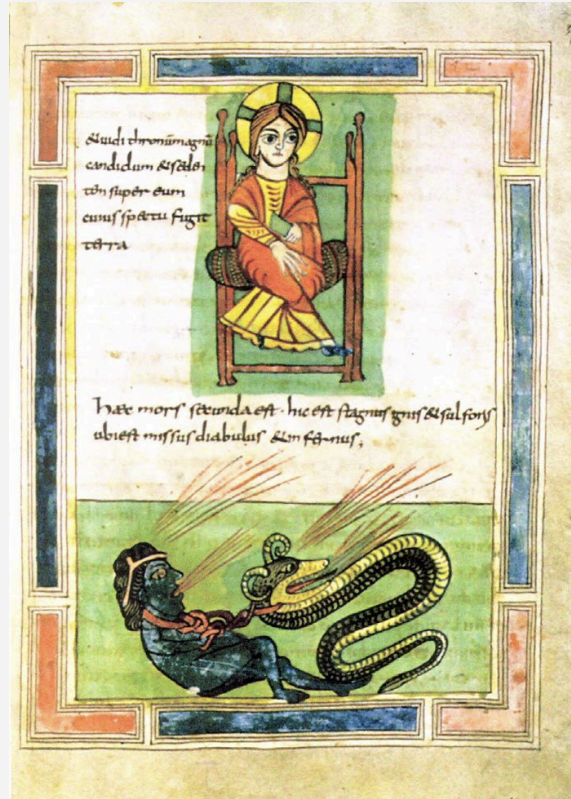 &uidi thronū magnū
candidum & seden
tēn super eum
cuius spectu fugit
terra
haec mors secunda est · hic est stagnus ignis & sulforis
ubi est missus diabulus & infernus,